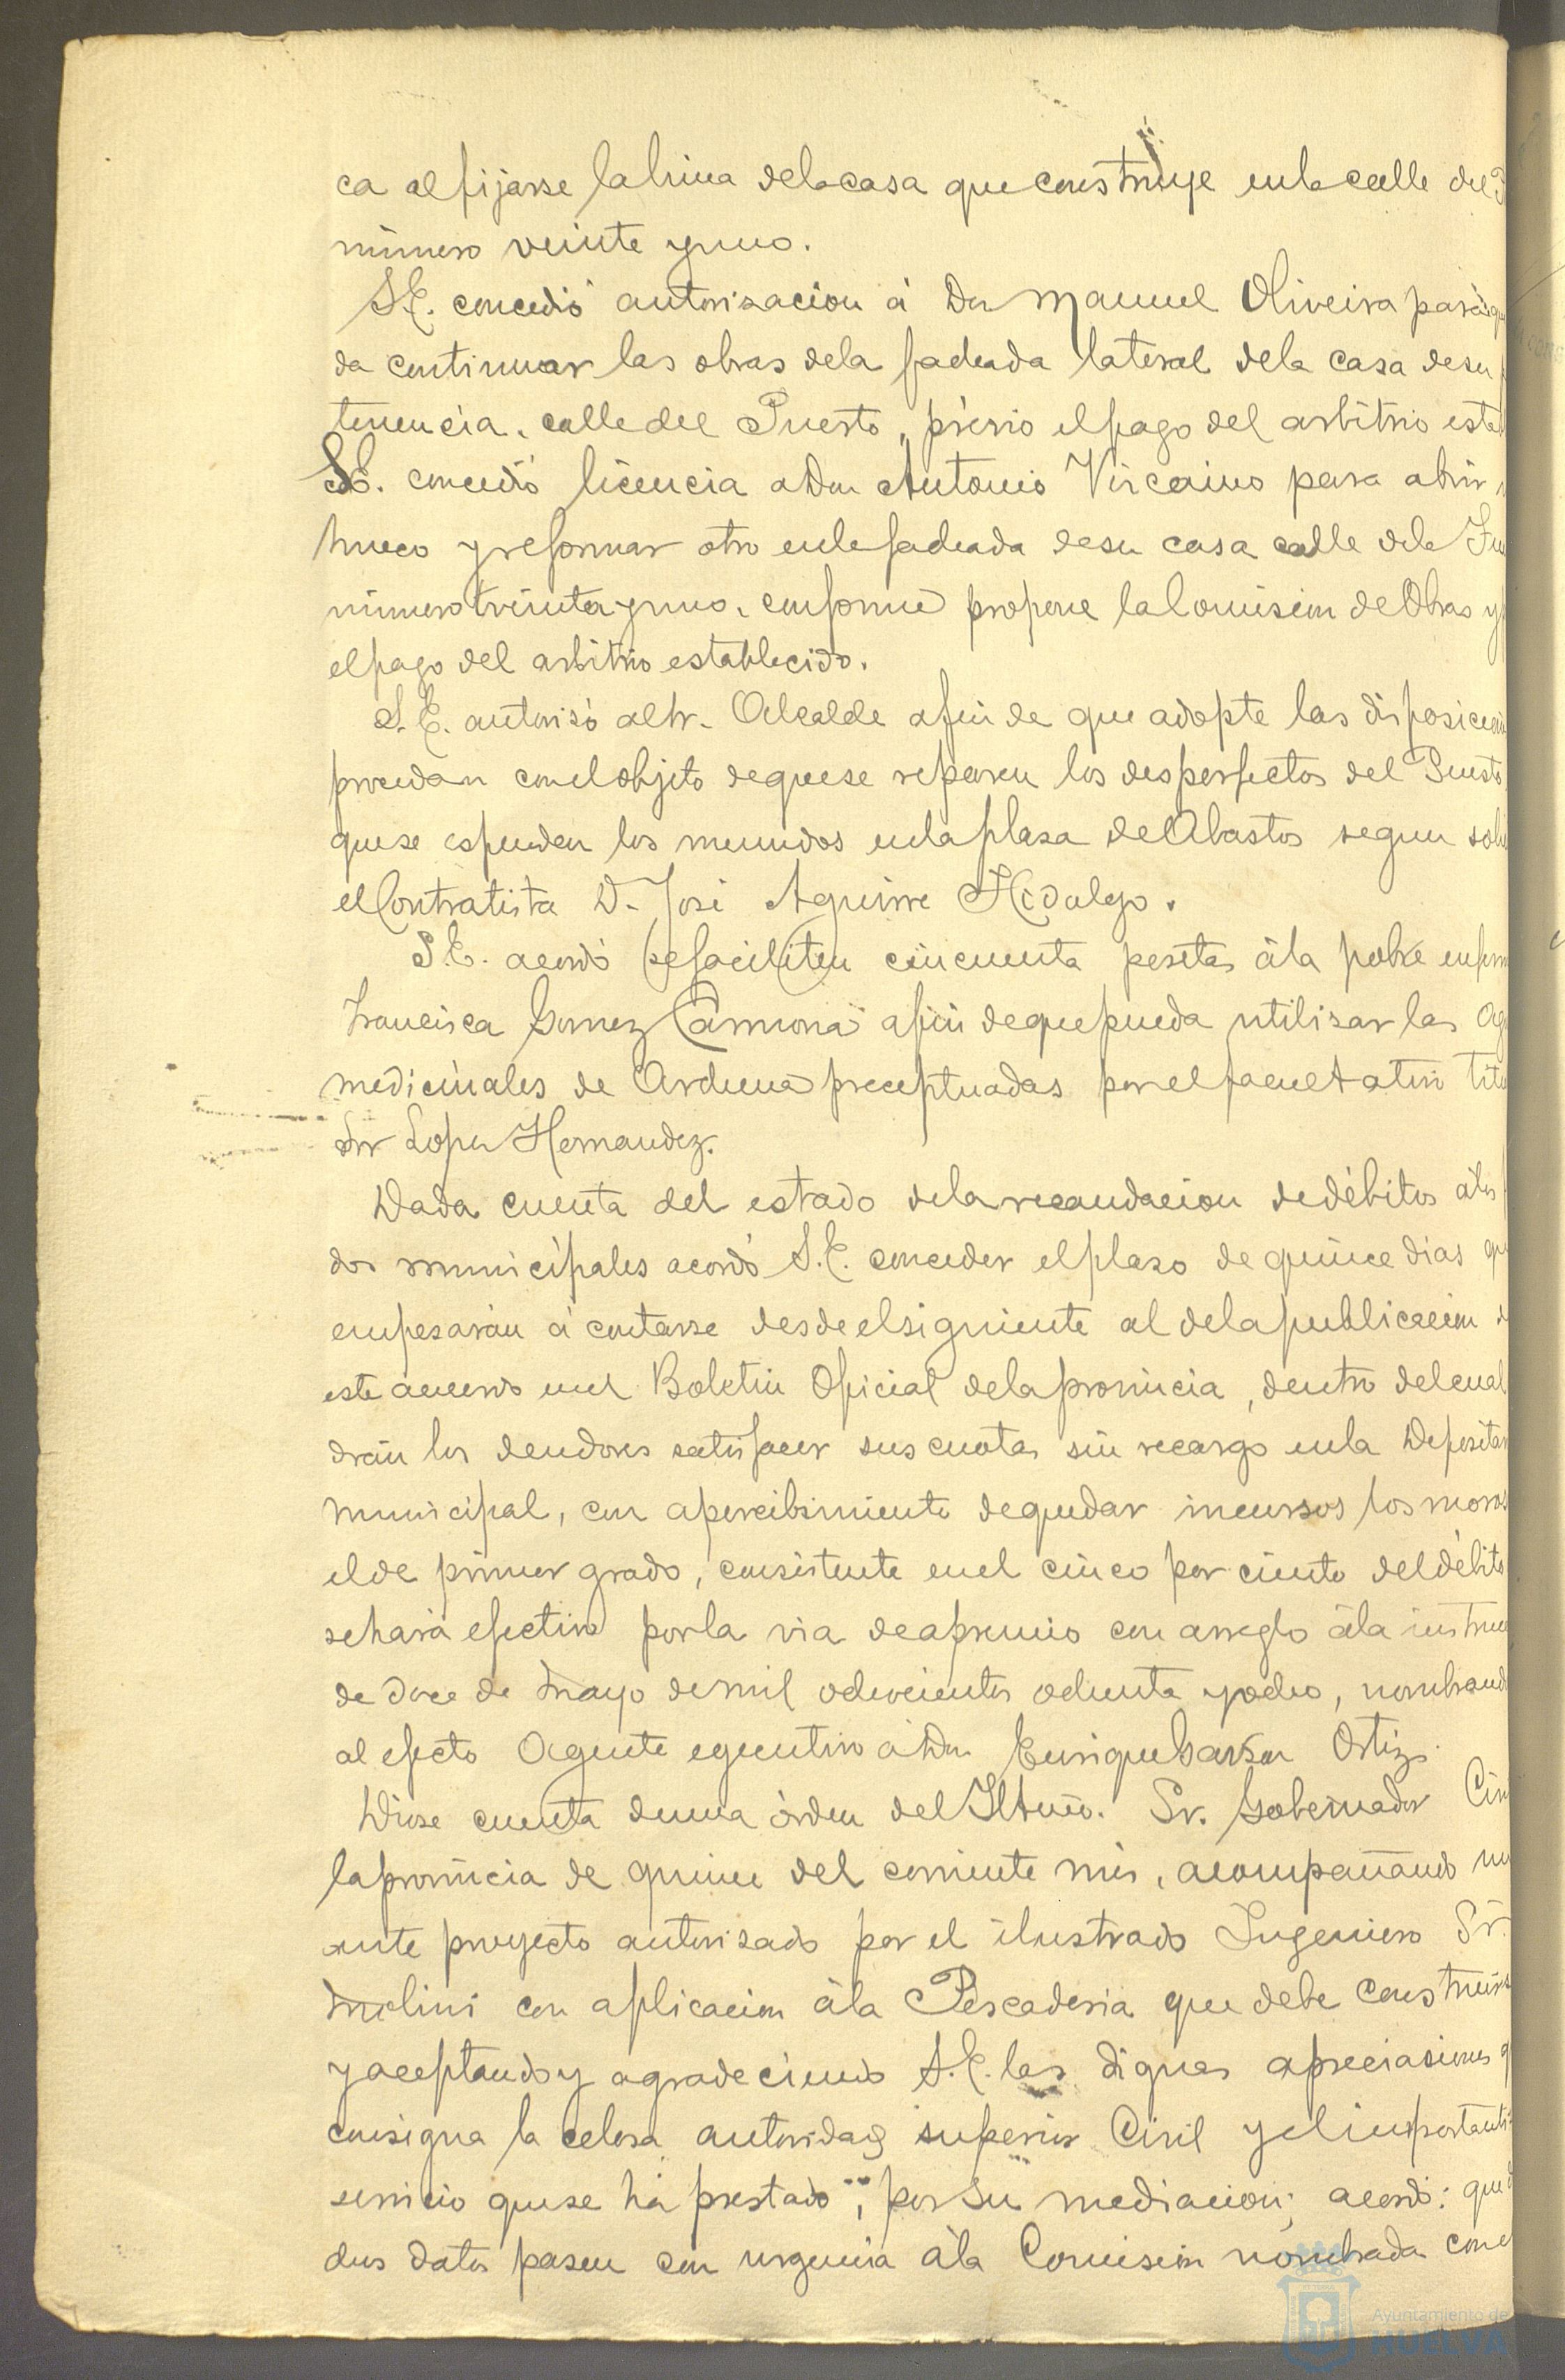 ca al fijarse la linea dela casa que construye enla calle del
número veinte y uno.
S.E. concedió autorizacion á Don Manuel Oliveira para q
da continuar las obras dela fachada lateral dela casa desu p
tenencia, calle del Puerto, prévio el pago del arbitrio esta
S.E. concedió licencia a Don Antonio Vizcaino para abrir
hueco y reformar otro enla fachada desu casa calle dela Fu
número treinta y uno, conforme propone la Comision de Obras y
el pago del arbitrio establecido.
S.E. autorizó al Sr. Alcalde afin de que adopte las disposicion
procedan con el objeto de que se reparen los desperfectos del Puesto
que se espenden los menudos enla plaza de Abastos segun soli
el Contratista D. José Aguirre Hidalgo.
S.E. acordó se faciliten cincuenta pesetas á la pobre enferm
Francisca Gomez Carmona afin de que pueda utilizar las Ag
medicinales de Archena preceptuadas por el facultativo titu
Sr Lopez Hernandez.
Dada cuenta del estado dela recaudacion de débitos á los f
dos municipales acordó S.E. conceder el plazo de quince dias qu
empezarán á contarse desde el siguiente al dela publicacion d
este acuerdo en el Boletin Oficial dela provincia, dentro del cual
drán los deudores satisfacer sus cuotas sin recargo enla Depositar
municipal, con apercibimiento de quedar incursos los moros
el de primer grado, consistente en el cinco por ciento del débito
se hará efectivo por la via de apremio con arreglo á la instruc
de doce de Mayo de mil ochocientos ochenta y ocho, nombrand
al efecto Agente egecutivo á Don Enrique Garzon Ortiz.
Diose cuenta de una órden del Iltmo. Sr. Gobernador Civ
la provincia de quince del corriente mes, acompañando un
ante proyecto autorizado por el ilustrado Ingeniero Sr.
Molini con aplicacion á la Pescaderia que debe construirs
y aceptando y agradeciendo S.E. las dignas apreciaciones q
consigna la celosa autoridad superior Civil y el importanti
servicio que se há prestado, por su mediacion; acordó: que d
chos datos pasen con urgencia á la Comision nombrada con e
Ayuntamiento de
HUELVA